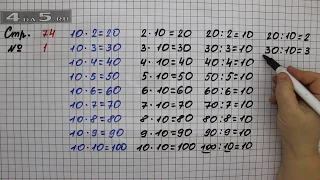 4DA5.RU
Стр. 74 10·2=20 2·10=20 20:2=10 20:10=2
№ 1 10·3=30 3·10=30 30:3=10 30:10=3
10·4=40 4·10=40 40:4=10
10·5=50 5·10=50 50:5=10
10·6=60 6·10=60 60:6=10
10·7=70 7·10=70 70:7=10
10·8=80 8·10=80 80:8=10
10·9=90 9·10=90 90:9=10
10·10=100 10·10=100 100:10=10